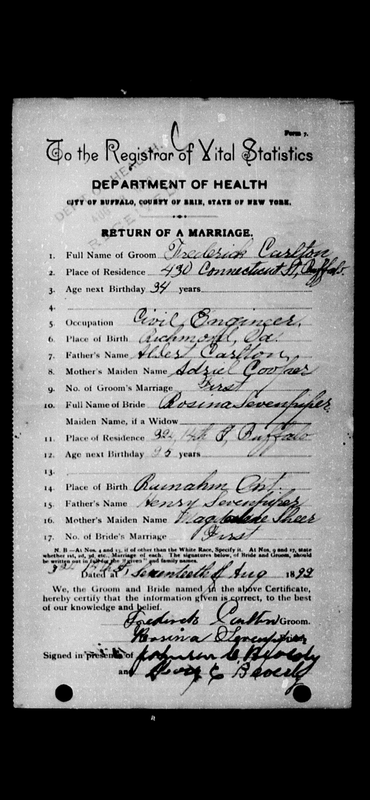 Form 7.
To the Registrar of Vital Statistics
DEPARTMENT OF HEALTH
CITY OF BUFFALO, COUNTY OF ERIE, STATE OF NEW YORK.
RETURN OF A MARRIAGE.
1. Full Name of Groom Frederick Carlton
2. Place of Residence 430 Connecticut St, Buffalo.
3. Age next Birthday 34 years
4.
5. Occupation Civil Engineer.
6. Place of Birth Richmond, Va
7. Father's Name Carlton,
8. Mother's Maiden Name Cooper
9. No. of Groom's Marriage First
10. Full Name of Bride Rosina Sevenpiper
Maiden Name, if a Widow
11. Place of Residence 14th St, Buffalo
12. Age next Birthday 25 years
13.
14. Place of Birth Ont.
15. Father's Name Henry Sevenpiper
16. Mother's Maiden Name Magdalene Sheer
17. No. of Bride's Marriage First
N. B.—At Nos. 4 and 13, if of other than the White Race, Specify it. At Nos. 9 and 17, state
whether 1st, 2d, 3d, etc., Marriage of each. The signatures below, of Bride and Groom, should
be written out in full for the "given" and family names.
Dated at Aug 1892
We, the Groom and Bride named in the above Certificate,
hereby certify that the information given is correct, to the best
of our knowledge and belief.
Frederick Carlton Groom.
Rosina Sevenpiper
Signed in presence of
and C Beverly